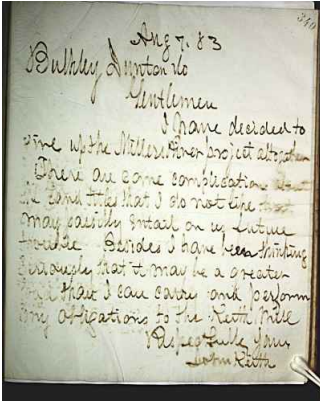 340
Aug 7. 83
Bulkley Dunton & Co
Gentlemen
I have decided to
give up the Millers River project altogether
There are some complications about
the land titles that I do not like that
may easily entail on us future
trouble. Besides I have been thinking
seriously that it may be a greater
than I can carry and perform
my obligations to the Keith Mill
Respectfully Yours
John Keith